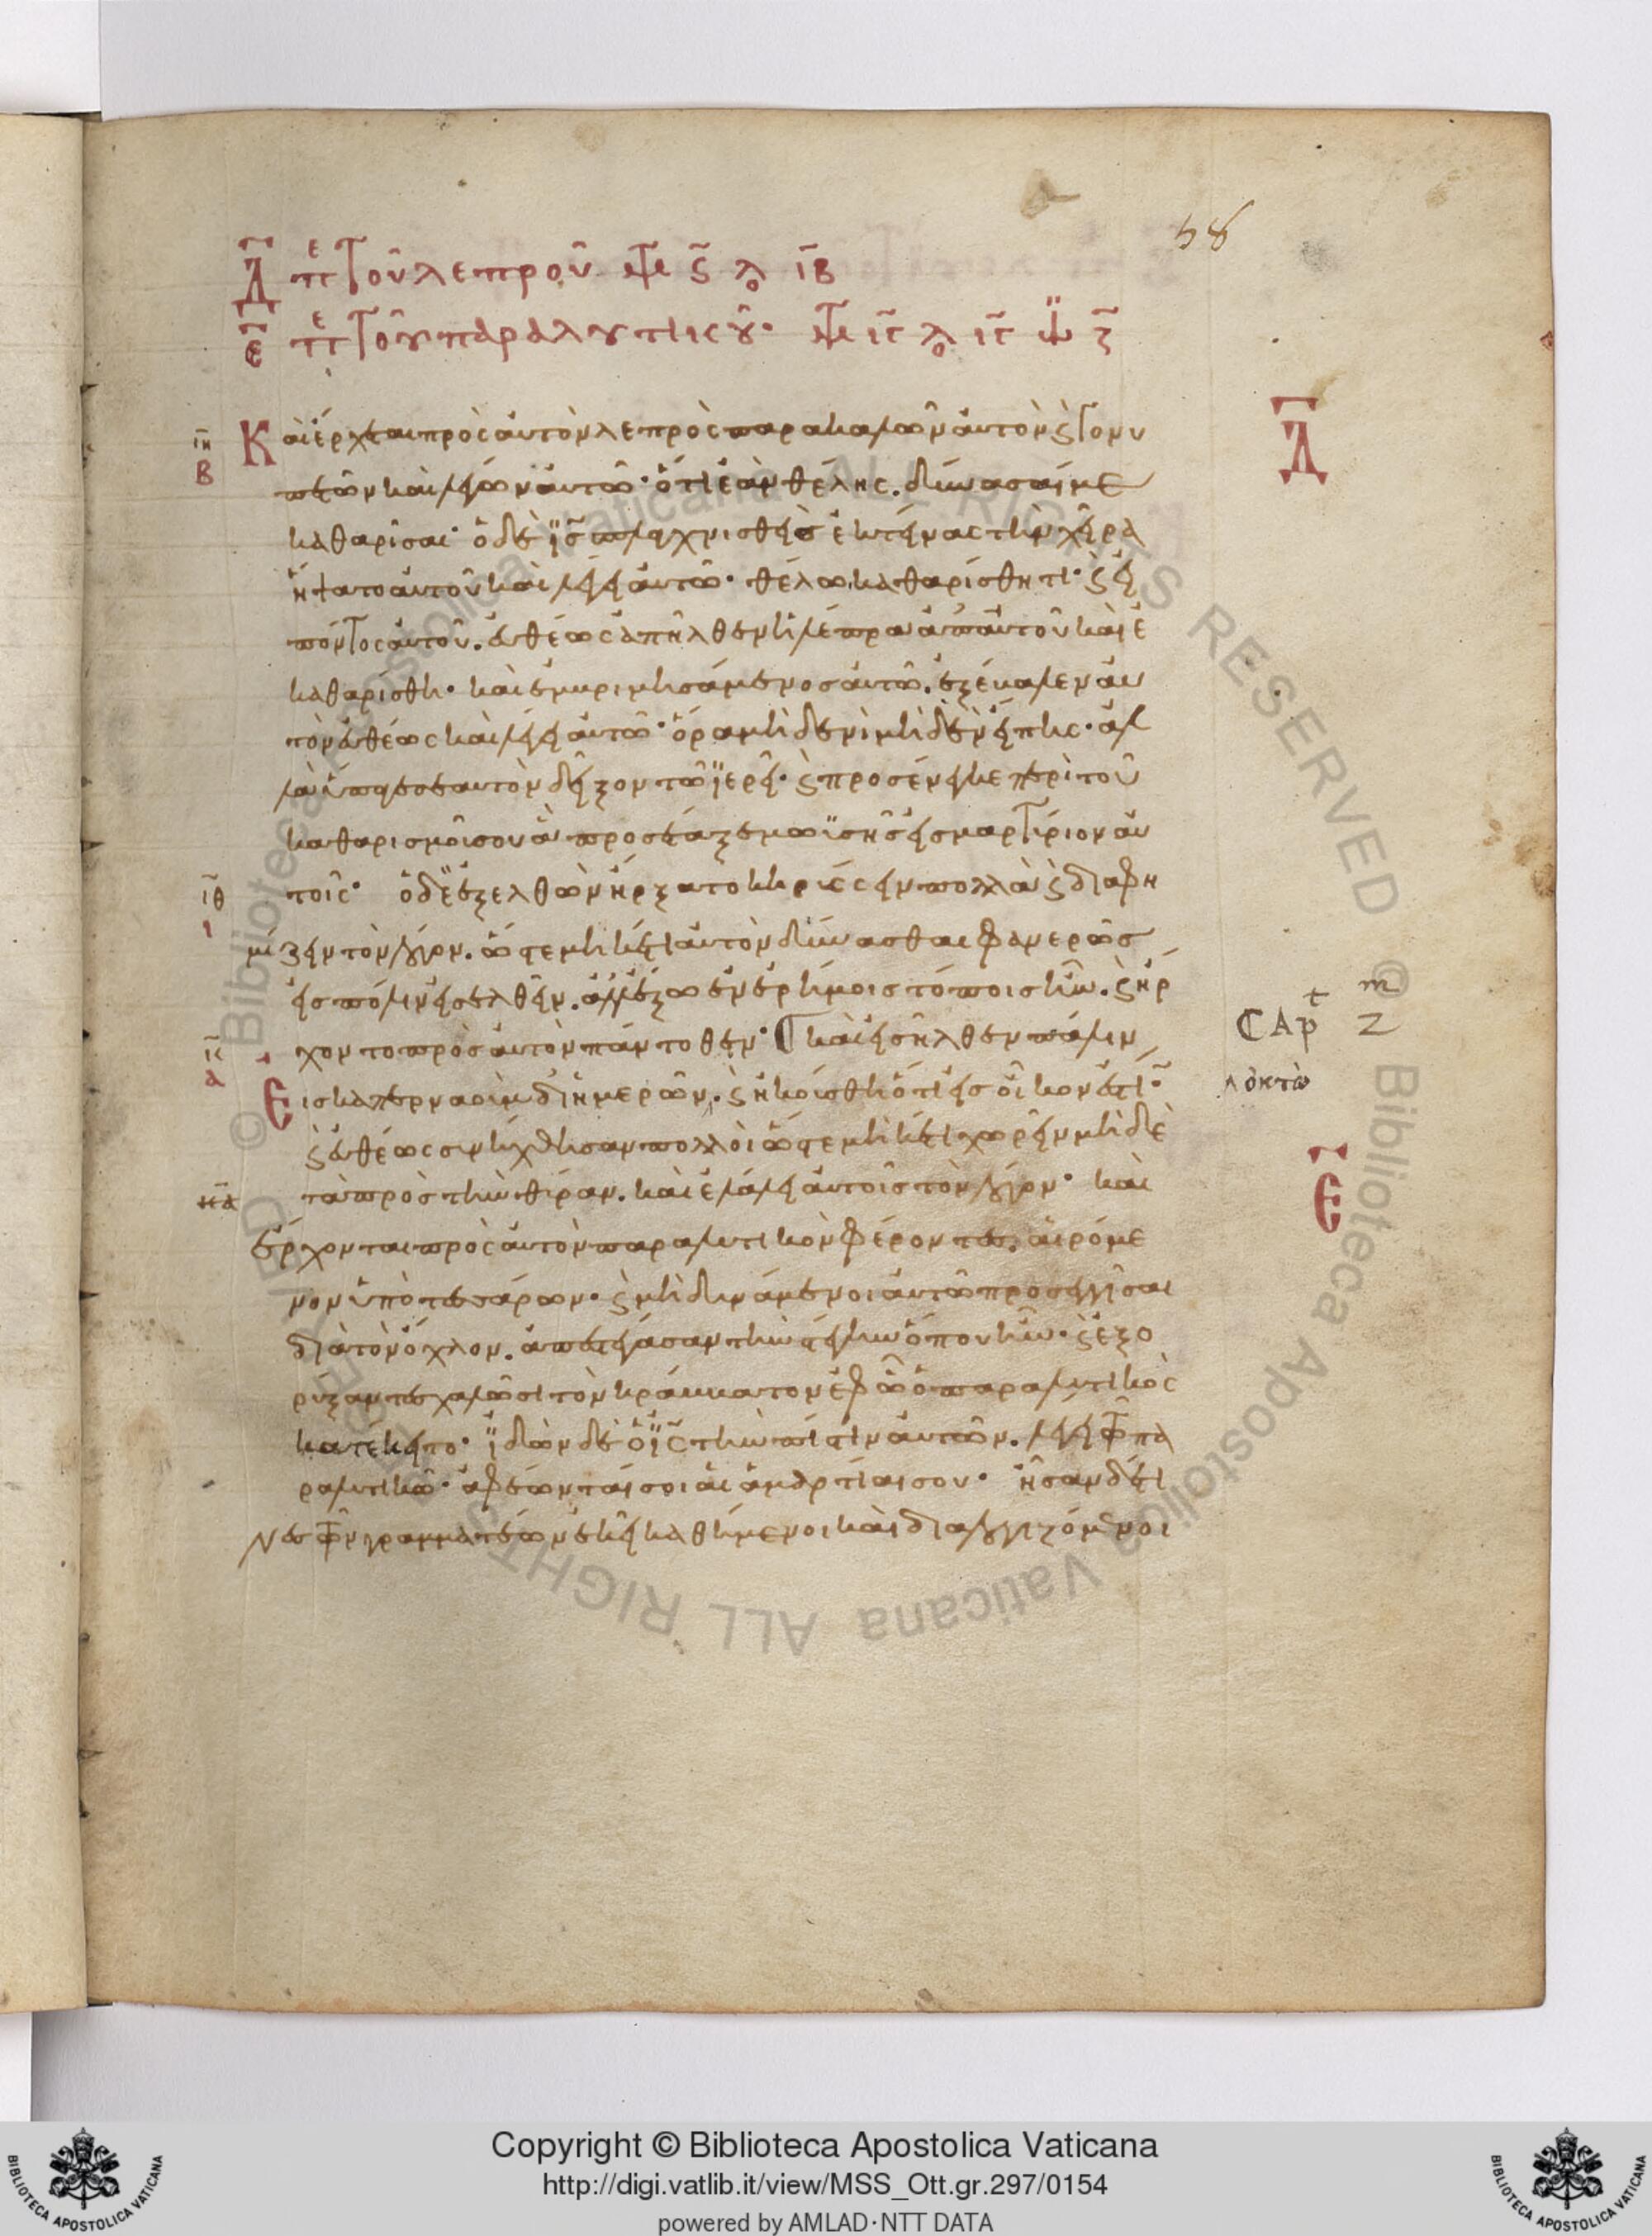 58
Δ πε τοῦ λεπροῦ Μθ ς λο ιβ
ε πε τοῦ παραλυτικοῦ· Μθ ιγ λο ιγ ιω ζ
ιη β Καὶ ἔρχεται πρὸς αὐτὸν λεπρὸς παρακαλῶν αὐτὸν ϛ γονυ Δ
πετῶν καὶ λέγων αὐτῶ· ὅτι ἐὰν θέλης. δύνασαί με
καθαρῖσαι· ὁ δὲ ἰς σπλαχνισθεὶς ἐκτείνας τὴν χεῖρα
ἥψατο αὐτοῦ καὶ λέγει αὐτῶ· θέλω καθαρίσθητι· ϛ εἰ
πόντος αὐτοῦ. εὐθέως ἀπῆλθεν ἡ λέπρα ἀπ αὐτοῦ καὶ ἐ
καθαρίσθη· καὶ ἐμβριμησάμενος αὐτῶ. ἐξέβαλεν αὐ
τὸν εὐθέως καὶ λέγει αὐτῶ· ὅρα μηδενὶ μηδὲν εἴπης· ἀλ
λὰ ὕπαγε σεαυτὸν δεῖξον τῶ ἱερεῖ· ϛ προσένεγκε περὶ τοῦ
καθαρισμοῦ σου ἃ προσέταξε μωϋσῆς εἰς μαρτύριον αὐ
ιθ ι τοῖς· ὁ δὲ ἐξελθὼν ἤρξατο κηρύσσειν πολλὰ ϛ διαφη
μίζειν τὸν λόγον. ὥστε μηκέτι αὐτὸν δύνασθαι φανερῶς
εἰς πόλιν εἰσελθεῖν. ἀλλ ἔξω ἐν ἐρήμοις τόποις ἦν. ϛ ἤρ
κ α χοντο πρὸς αὐτὸν πάντοθεν· καὶ εἰσῆλθεν πάλιν CAPt m Z
Εἰς καπερναοὺμ δι ἡμερῶν. ϛ ἠκούσθη ὅτι εἰς οἶκον ἐστί·
ϛ εὐθέως συνήχθησαν πολλοὶ ὥστε μηκέτι χωρεῖν μηδὲ Ε
κα τὰ πρὸς τὴν θύραν. καὶ ἐλάλει αὐτοῖς τὸν λόγον· καὶ
ἔρχονται πρὸς αὐτὸν παραλυτικὸν φέροντες. αἰρόμε
νον ὑπὸ τεσσάρων· ϛ μὴ δυνάμενοι αὐτῶ προσεγγίσαι
διὰ τὸν ὄχλον. ἀπεστέγασαν τὴν στέγην ὅπου ἦν· ϛ ἐξο
ρύξαντες χαλῶσι τὸν κράββατον ἐφ ὧ ὁ παραλυτικὸς
κατέκειτο· ἰδὼν δὲ ὁ ἰς τὴν πίστιν αὐτῶν. λέγει τῶ πα
ραλυτικῶ· ἀφέωνταί σοι αἱ ἁμαρτίαι σου· ἦσαν δέ τι
νες τῶν γραμματέων ἐκεῖ καθήμενοι καὶ διαλογιζόμενοι
Copyright © Biblioteca Apostolica Vaticana
http://digi.vatlib.it/view/MSS_Ott.gr.297/0154
powered by AMLAD·NTT DATA
BIBLIOTECA APOSTOLICA VATICANA
BIBLIOTECA APOSTOLICA VATICANA